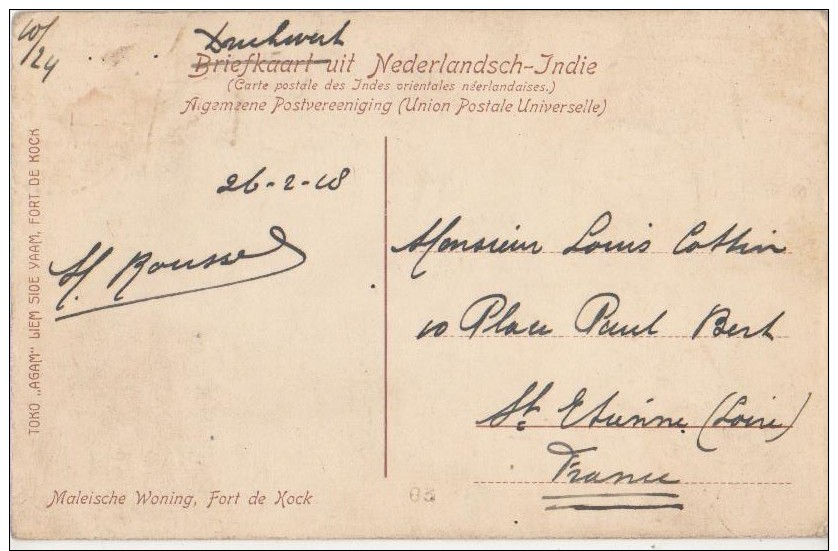 10/24
Drukwerk
Briefkaart uit Nederlandsch-Indie
(Carte postale des Indes orientales néerlandaises.)
Algemeene Postvereeniging (Union Postale Universelle)
TOKO „AGAM" LIEM SIOE YAAM, FORT DE KOCK
26-2-18
H. Roussel
Monsieur Louis Cottin
10 Place Paul Bert
St Etienne (Loire)
France
Maleische Woning, Fort de Kock
05